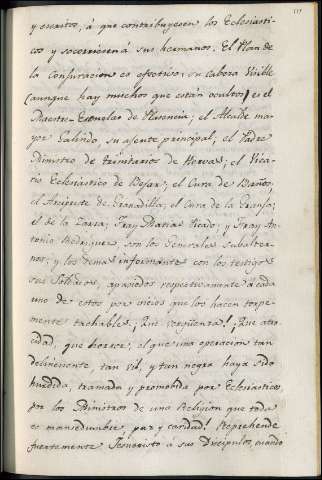 y escritos, á que contribuyesen los Eclesiasti-
cos y socorriesen á sus hermanos. El Plan de
la Conjuracion es efectivo: su cabeza Visible
(aunque hay muchos que están ocultos) es el
Maestre-Escuelas de Plasencia; el Alcalde ma-
yor Galindo, su agente principal; el Padre
Ministro de trinitarios de Hervas; el Vica-
rio Eclesiastico de Bejar; el Cura de Baños;
el Arcipreste de Granadilla; el Cura de la Granja;
el de la Zarza; Fray Matias Recio; y Fray An-
tonio Rodriguez, son los Generales subalter-
nos; y los demas informantes con los testigos
sus Soldados, apasiados respectivamente á cada
uno de estos por vicios que los hacen torpe-
mente tachables. ¡Que verguenza! ¡Que atro-
cidad, que horror, el que una operacion tan
delincuente, tan vil, y tan negra haya sido
hurdida, tramada y promobida por Eclesiasticos,
por los Ministros de una Religion que toda
es mansedumbre, paz y caridad! Reprehende
fuertemente Jesucristo á sus Discipulos, cuando